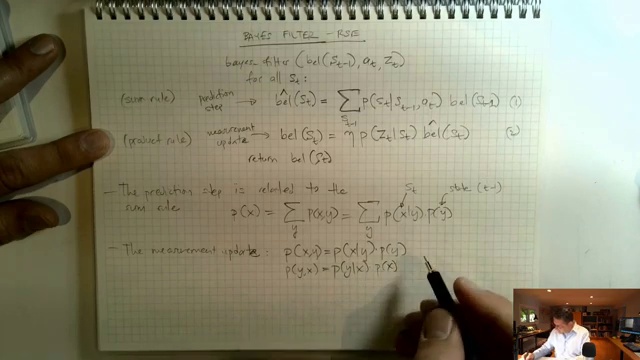 BAYES FILTER - RSE
bayes filter (bel(S_{t-1}), a_t, z_t)
for all S_t:
(sum rule) prediction step → bel^(S_t) = ∑_{S_{t-1}} p(S_t|S_{t-1}, a_t) bel(S_{t-1}) (1)
(product rule) measurement update → bel(S_t) = η p(z_t|S_t) bel^(S_t) (2)
return bel(S_t)
S_t state (t-1)
- The prediction step is related to the
sum rule p(x) = ∑_y p(x,y) = ∑_y p(x|y) p(y)
- The measurement update: p(x,y) = p(x|y)·p(y)
p(y,x) = p(y|x) p(x)